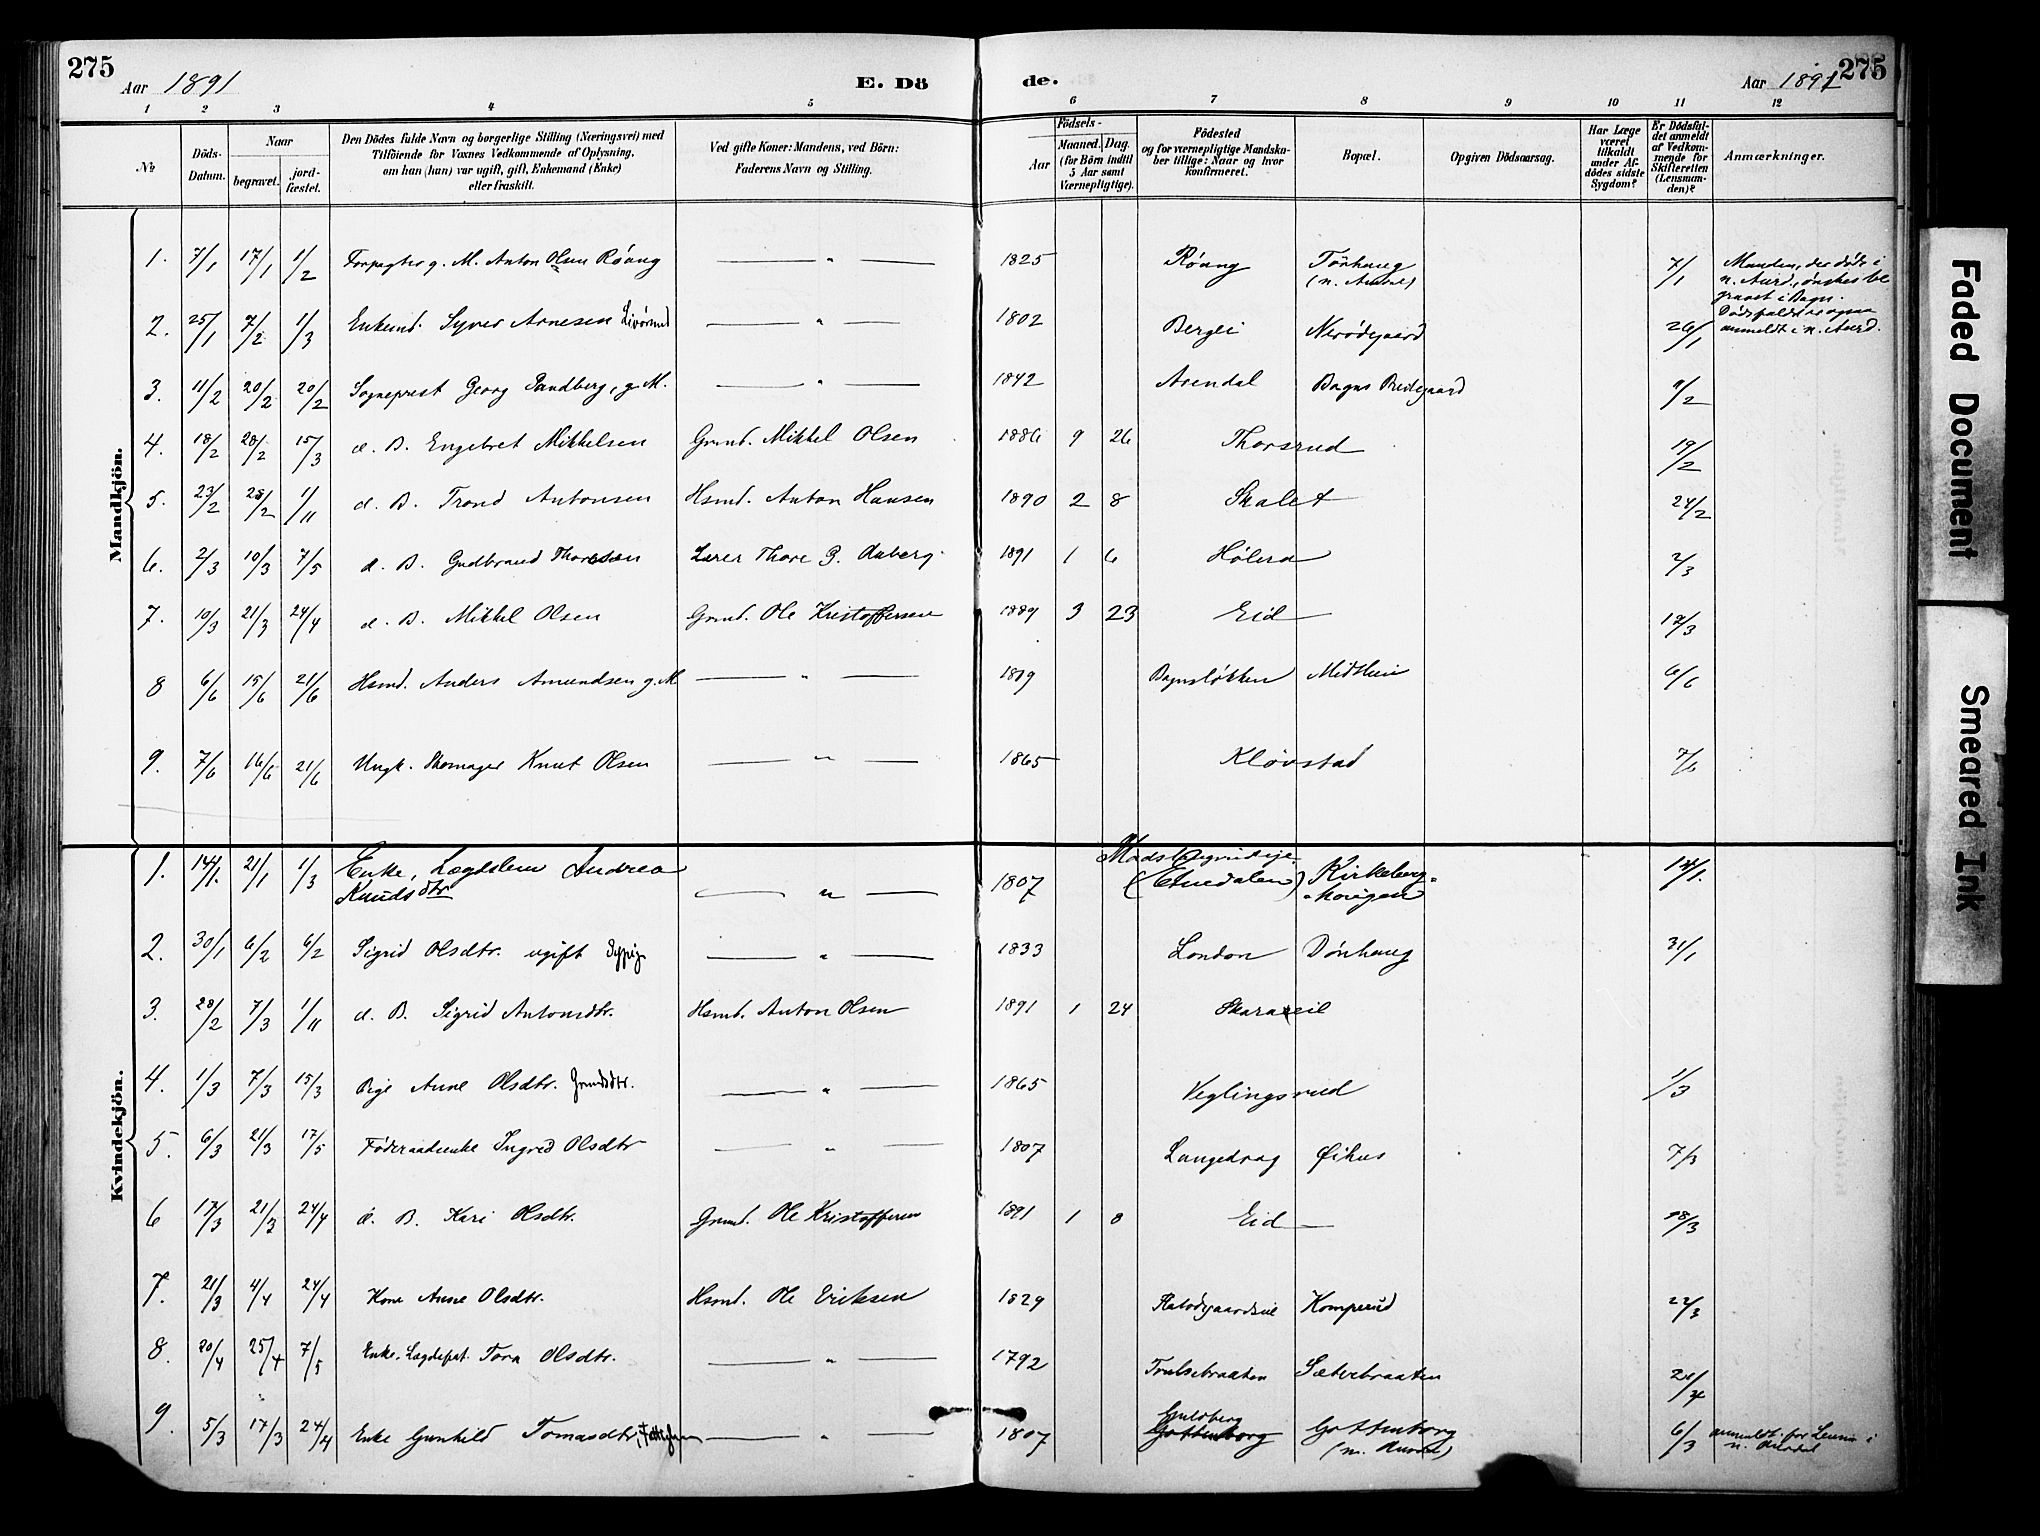 275
Aar 1891
E. Dö
de.
Aar 1891
275
1 2 3 4 5 6 7 8 9 10 11 12
№
Döds-Datum.
Naar
begravet.
jord-fæstet.
Den Dödes fulde Navn og borgerlige Stilling (Næringsvei) med
Tilföiende for Voxnes Vedkommende af Oplysning,
om han (hun) var ugift, gift, Enkemand (Enke)
eller fraskilt.
Ved gifte Koner: Mandens, ved Börn:
Faderens Navn og Stilling.
Födsels-
Aar
Maaned. Dag.
(for Börn indtil
5 Aar samt
Værnepligtige).
Födested
og for værnepligtige Mandska-
ber tillige: Naar og hvor
konfirmeret.
Bopæl.
Opgiven Dödsaarsag.
Har Læge
været
tilkaldt
under Af-
dödes sidste
Sygdom?
Er Dödsfal-
det anmeldt
af Vedkom-
mende for
Skifteretten
(Lensman-
den)?
Anmærkninger.
Mandkjön.
1. 7/1 17/1 1/2 Forpagter g. M. Anton Olsen Röang — " — 1825 Röang Törhaug (n. Aurdal) 7/1 Manden, der döde i
n. Aurd., önskes be
gravet i Bagn.
Dödsfaldet ogsaa
anmeldt i n. Aurd.
2. 25/1 7/2 1/3 Enkemd. Syver Arnesen — " — 1802 Bergli 26/1
3. 11/2 20/2 20/2 Sogneprest Georg Sandberg, g. M. — " — 1842 Arendal Bagns Prestegaard 9/2
4. 18/2 28/2 15/3 d. B. Engebret Mikkelsen Grmd. Mikkel Olsen 1886 9 26 Thorsrud 19/2
5. 23/2 28/2 1/11 d. B. Trond Antonsen Hsmd. Anton Hansen 1890 2 8 Skalet — 24/2
6. 2/3 10/3 7/5 d. B. Gudbrand Thoresen Lærer Thore G. Aaberg 1891 1 6 Hölera 2/3
7. 10/3 21/3 24/4 d. B. Mikkel Olsen Grmd. Ole Kristoffersen 1889 3 23 Eid — 12/3
8 6/6 15/6 21/6 Hsmd. Anders Amundsen g. M — " — 1819 Bagnsløkken Midtlien 6/6
9. 7/6 16/6 21/6 Ungk. Skomager Knut Olsen — " — 1865 Kløvstad 7/6
Kvindekjön.
1. 14/1. 21/1 1/3 Enke, Lægdslem Andrea
Knudsdtr — " — 1807 (Etnedalen) Kirkeberg-
14/1.
2. 30/1 6/2 6/2 Sigrid Olsdtr. ugift Sypig — " — 1833 London Dönhaug 31/1
3. 28/2 7/3 1/11 d. B. Sigrid Antonsdtr. Hsmd. Anton Olsen 1891 1 24
4. 1/3 7/3 15/3 Pige Anne Olsdtr. Grmdsdtr. — " — 1865 Veglingsrud 1/3
5. 6/3 21/3 17/5 Föderaadsenke Ingrid Olsdtr — " — 1807 Langedrag Øihus 7/3
6 17/3 21/3 24/4 d. B. Kari Olsdtr. Grmd. Ole Kristoffersen 1891 1 8 Eid — 18/3
7. 21/3 4/4 24/4 Kone Anne Olsdtr. Hsmd. Ole Eriksen 1829 Komperud 22/3
8. 20/4 25/4 7/5 Enke, Lægdepat. Tora Olsdtr. — " — 1792 Trulsebraaten Sæterbraaten 21/4
9. 5/3 17/3 24/4 Enke Gunhild Tomasdtr, Fattiglem — " — 1807 Guldberg
Gottenborg Gottenborg
(n. Aurdal) 6/3 anmeldt for Lensm i
n. Aurdal
Faded Document
Smeared Ink